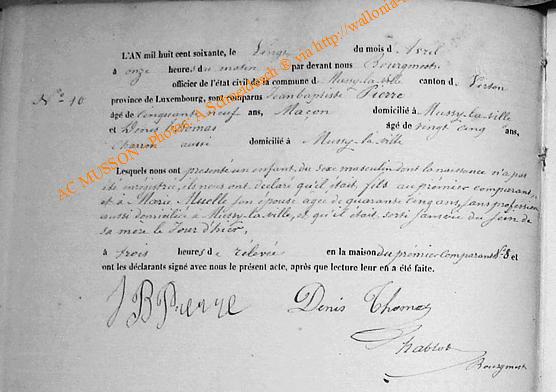 L'AN mil huit cent soixante, le Vingt du mois d'Avril
à onze heures du matin par devant nous Bourgmestre
officier de l'état civil de sa commune de Mussy-la-ville canton de Virton
N° 10 province de Luxembourg, sont comparus Jean baptiste Pierre
âgé de cinquante neuf ans, Macon domicilié à Mussy-la-ville
et Denis Thomas âgé de vingt cinq ans,
charron aussi domicilié à Mussy-la-ville
Lesquels nous ont présenté un enfant du sexe masculin dont la naissance n'a pas
été enrégistrée, ils nous ont déclaré qu'il était fils au premier comparant
et à Marie son épouse agée de quarante cinq ans, sans profession
aussi domiciliée à Mussy-la-ville, et qu'il était sorti du sein de
sa mère le Jour d'hier,
à trois heures de relevée en la maison du prémier comparant N° 8 et
ont les déclarants signé avec nous le présent acte, après que lecture leur en a été faite.
J B Pierre Denis Thomas
Bourgmest
AC MUSSON - Photos: A.Schmeidesch ® via http://wallonia-